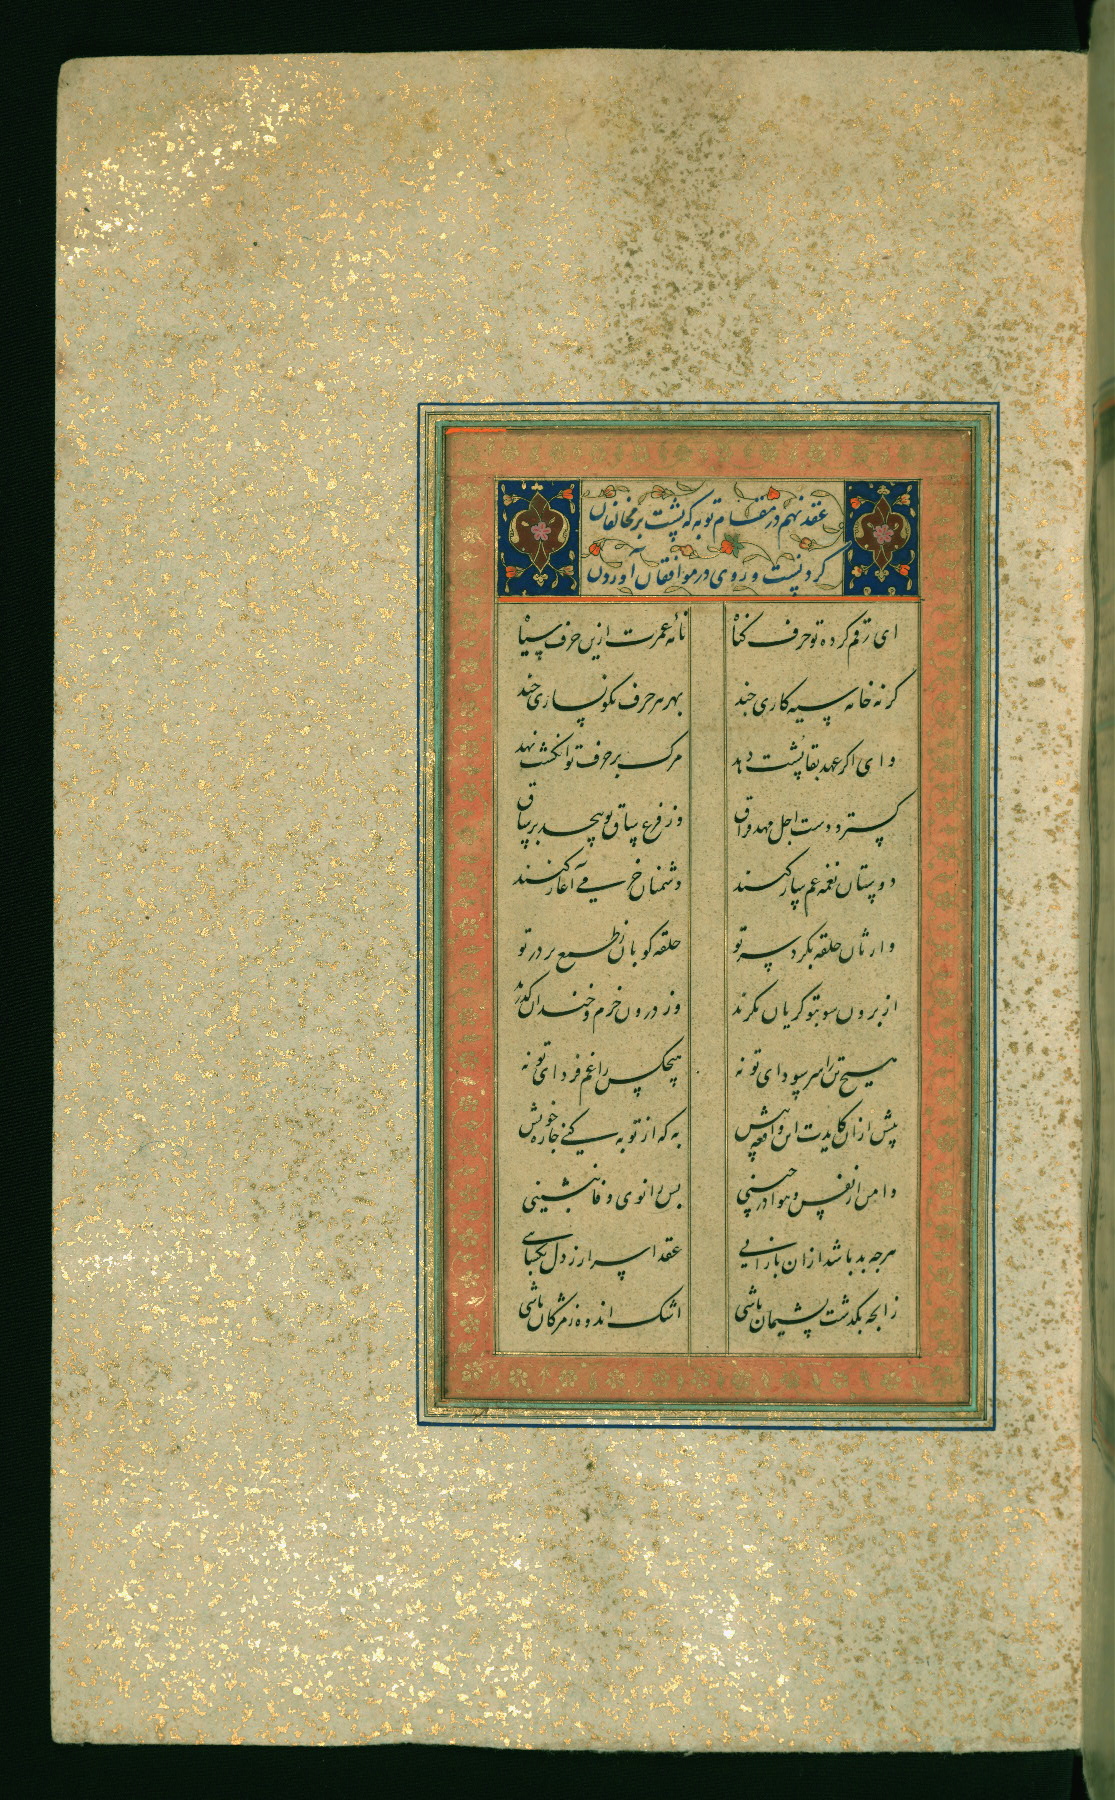 عقد نهم در مقام توبه که پشت بر مخالفان
کردنست و روی در موافقان آوردن
ای رقم کرده تو حرف کناه نامه عمرت ازین حرف سیاه
کر نه خانه سیه کاری چند بهر هر حرف نکونساری چند
وای اکر عهد بقا پشت دهد مرک بر حرف تو انکشت نهد
کسترد دست اجل مهد فراق وز فزع ساق تو پیچد بر ساق
دوستان نغمه غم ساز کنند دشمنان خرمی آغاز کنند
وارثان حلقه بکرد سر تو حلقه کوبان ز طمع بر در تو
از برون سو بتو کریان نکرند وز درون خرم و خندان کذرند
هیچ تن را سر سودای تو نه هیچکس را غم فردای تو نه
پیش ازان کایدت این واقعه پیش به که از توبه کنی چاره خویش
دامن از نفس و هوا در چینی پس زانوی وفا بنشینی
هرچه بد باشد ازان باز آیی عقد اسرار ز دل بکشای
زانچه بکذشت پشیمان باشی اشک اندوه ز مژکان باشی